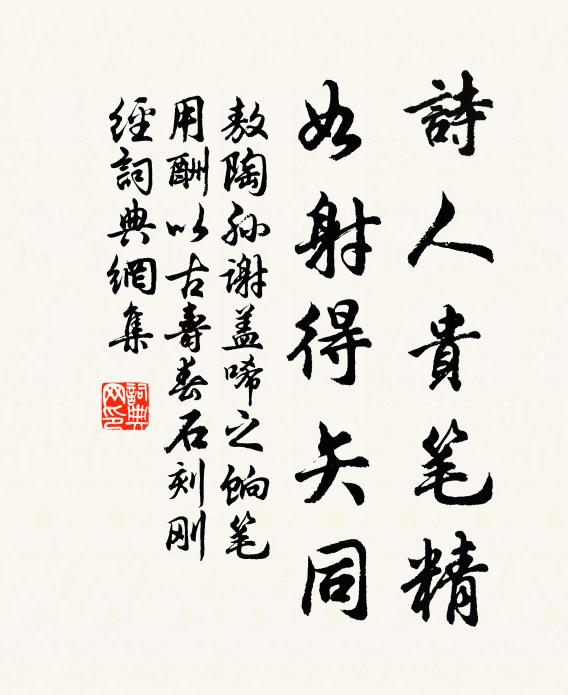 詩人貴笔精
如射得矢同
敖陶孙謝盖晞之餉笔
用酬以古壽春石刻刚
經詞典網集
詞典网印